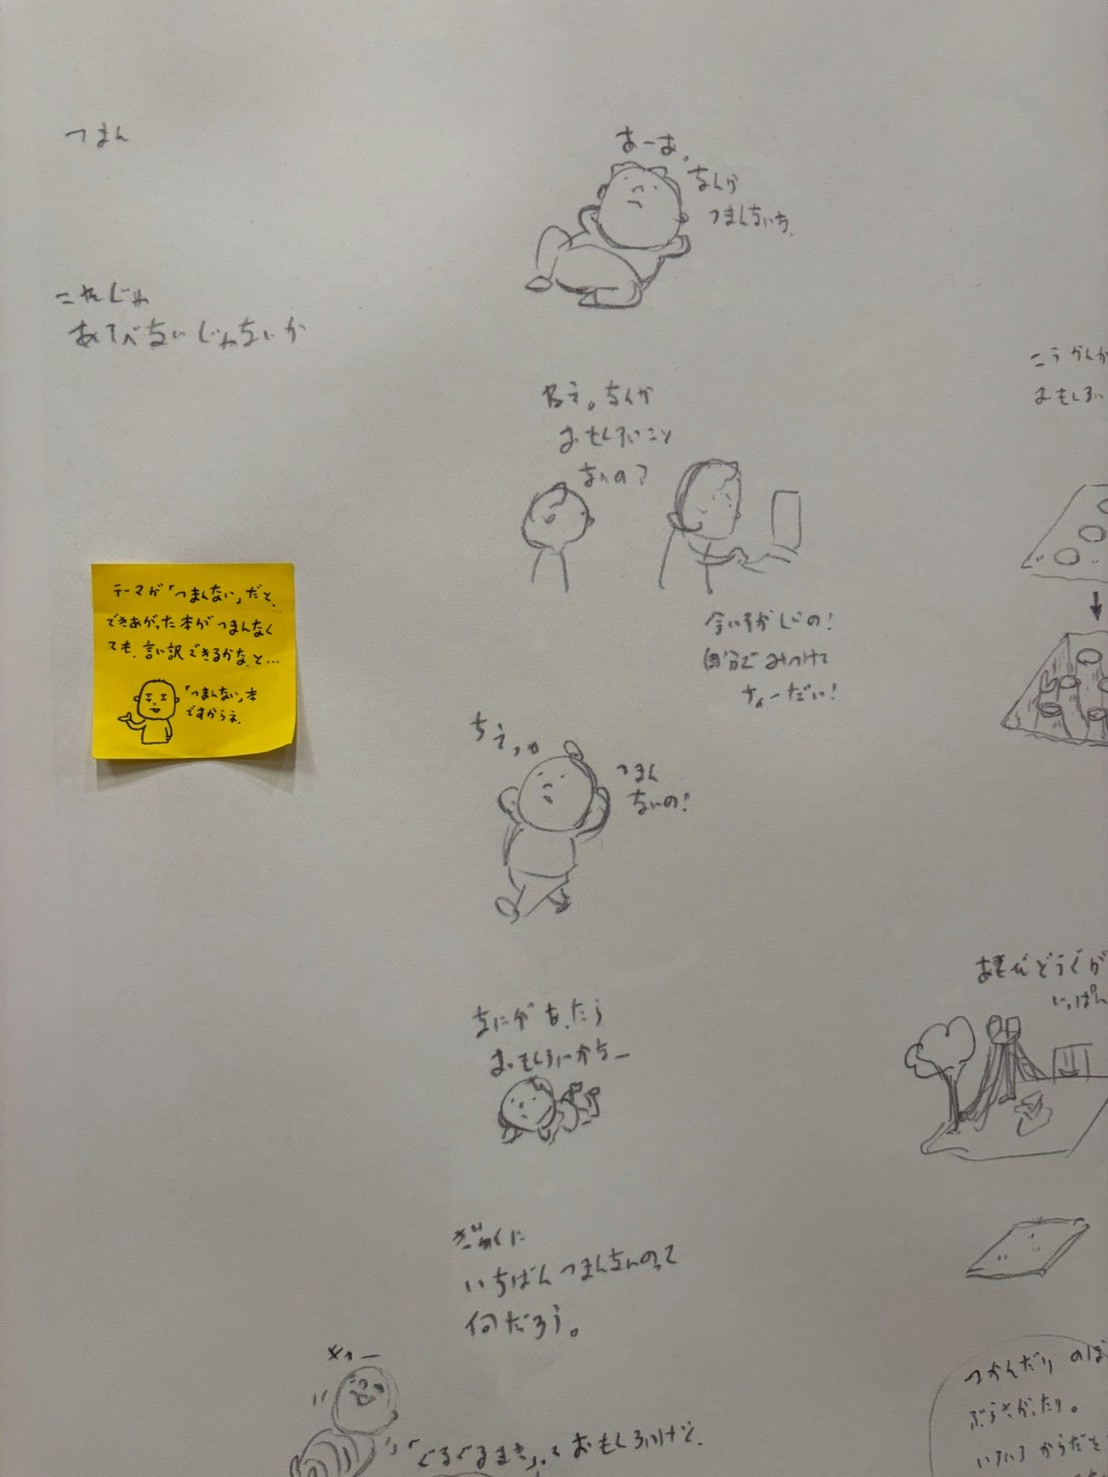 つまん
これじゃ
あそべないじゃないか
テーマが「つまんない」だと、
できあがった本がつまんなく
ても、言い訳できるかな、と…
「つまんない」本
ですからネ。
あーあ。
なんか
つまんないな。
ねえ。なんか
おもしろいこと
ないの？
今いそがしいの！
自分でみつけて
ちょーだい！
ちえっ。
つまん
ないの！
なにがあったら
おもしろいかなー
ぎゃくに
いちばんつまんないのって
何だろう。
「ぐるぐるまき」って おもしろいけど、
こうかんが
おもしろい
あそびどうぐが
いっぱい
つかんだり のぼ
ぶらさがったり。
いろいろ からだを